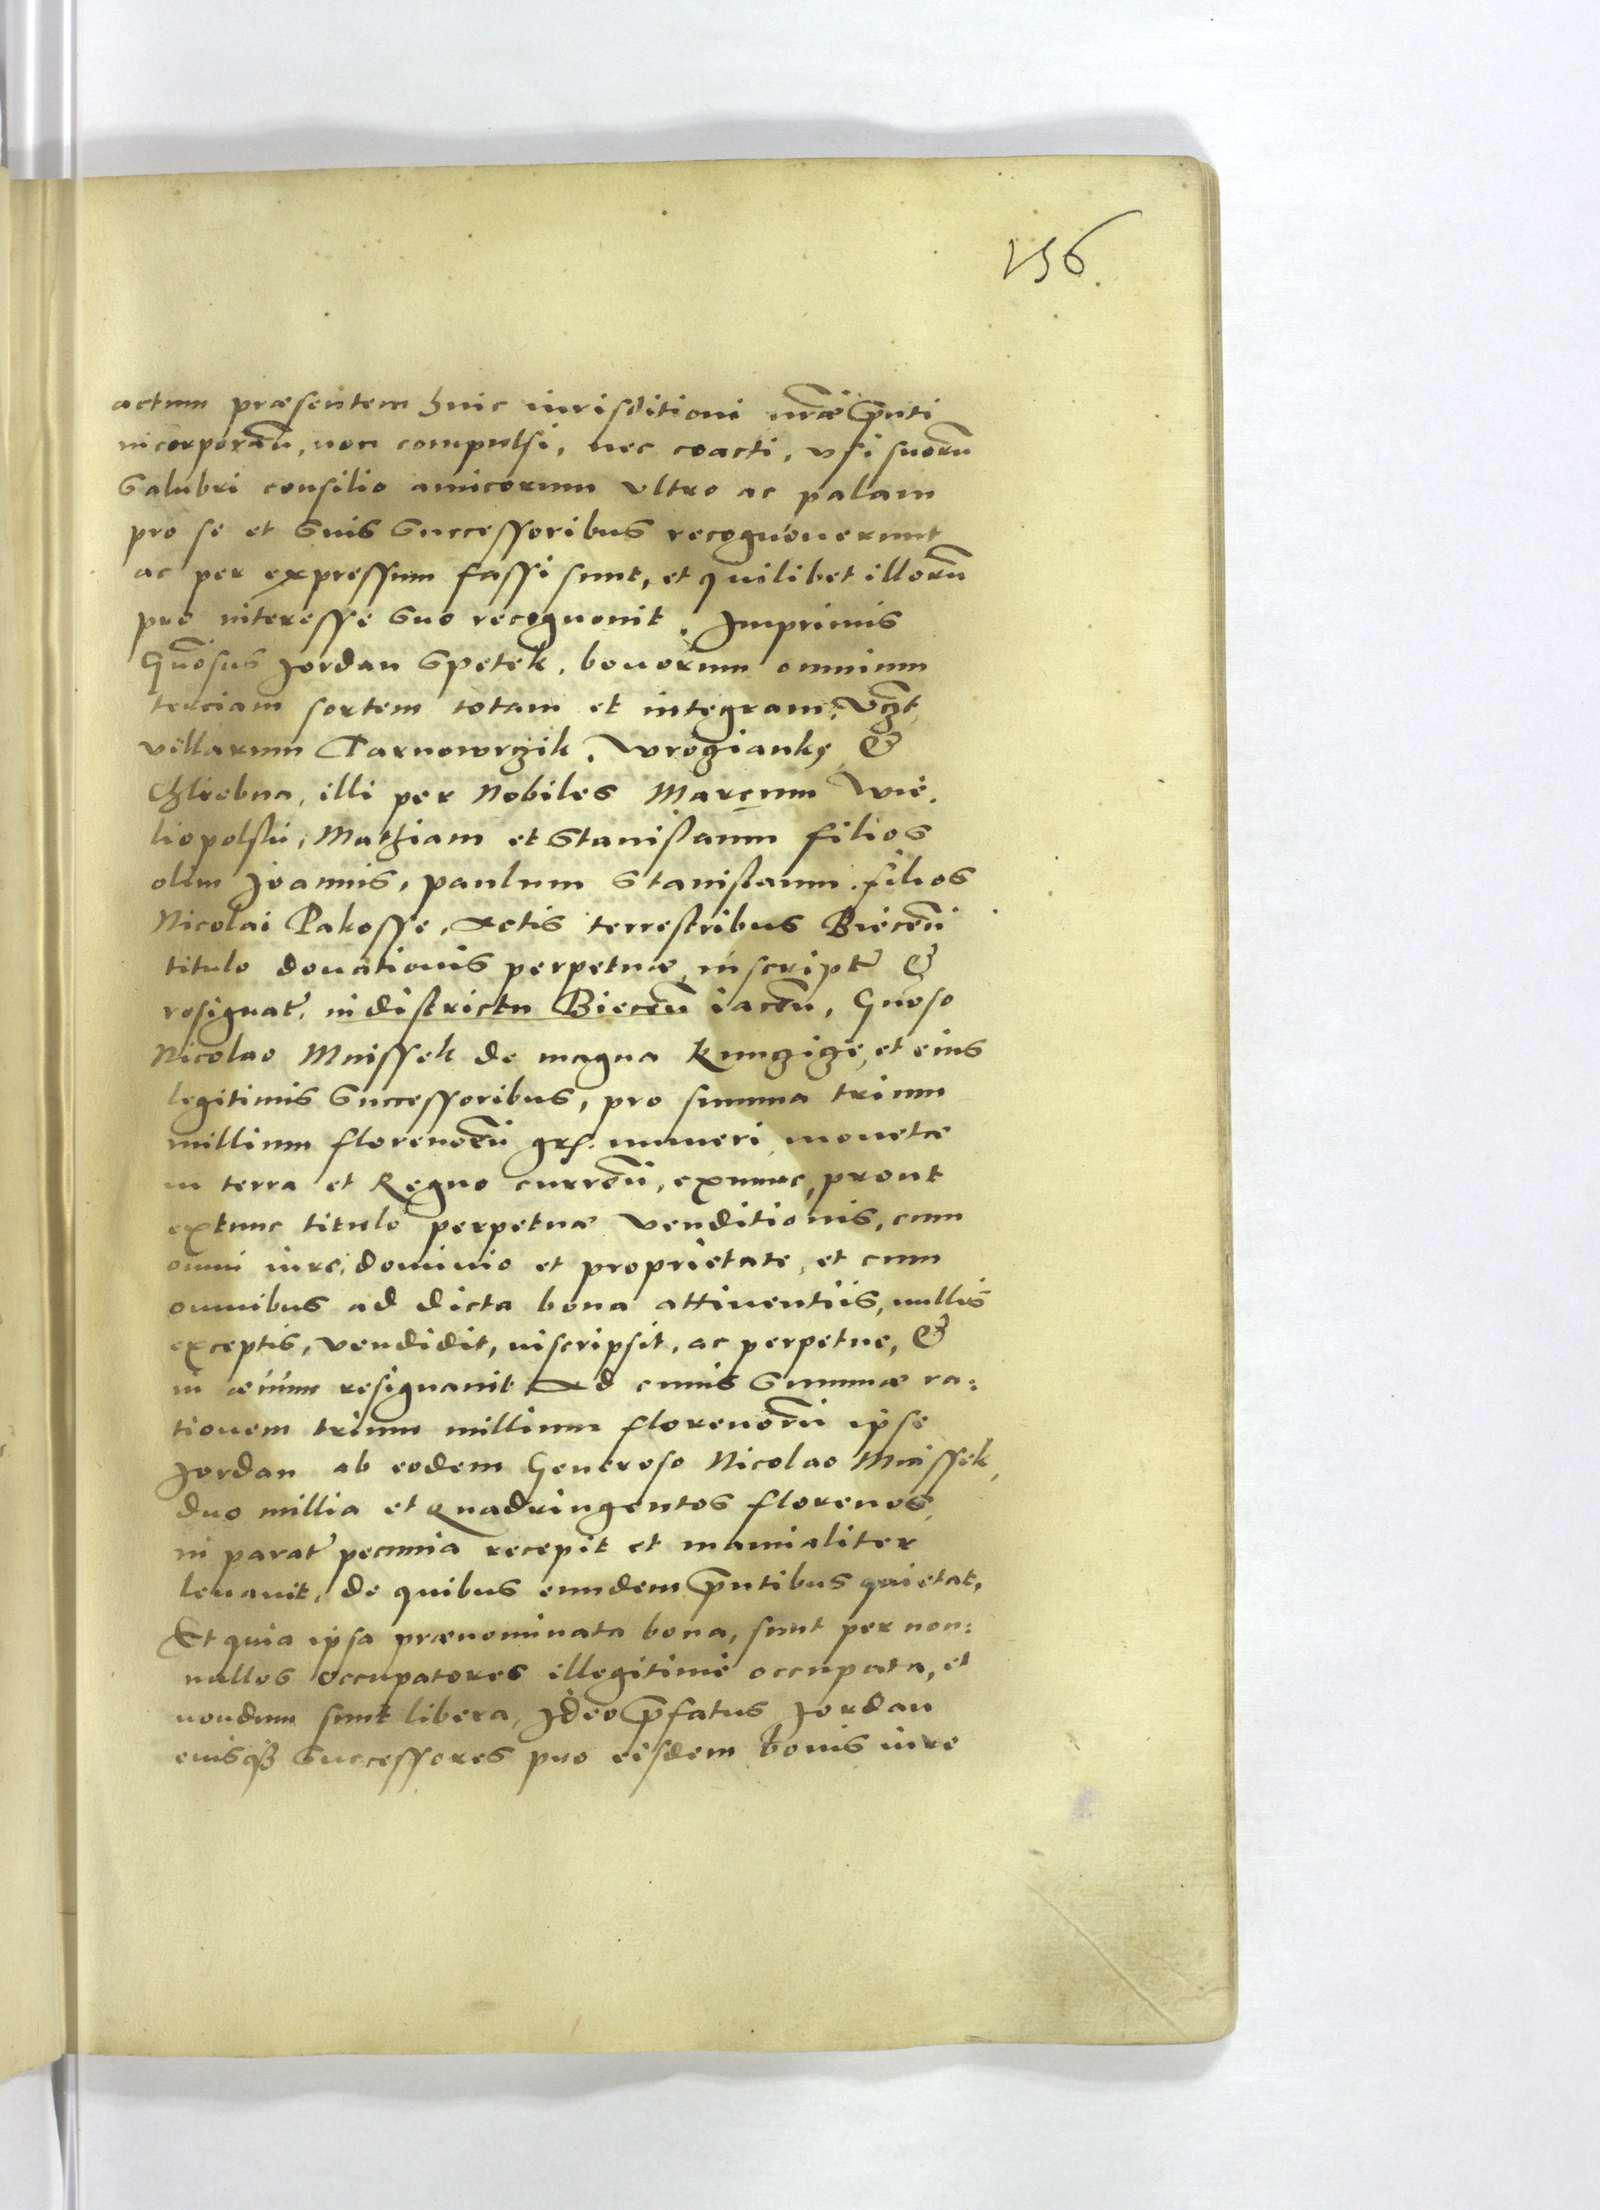 156.
actum præsentem huic iurisditioni nr̃æ p̃nti
incorporañ, non compulsi, nec coacti, vsi suorũ
salubri consilio amicorum vltro ac palam
pro se et suis successoribus recognouerunt
ac per expressum fassi sunt, et quilibet illorũ
pro interesse suo recognouit. Imprimis
Gñosus Jordan Spetek, bonorum omnium
terciam sortem totam et integram, vz̃t
villarum Tarnowrzik, Wrozianky &
Chlebna, illi per Nobiles Marcum Wie-
liopolski, Mathiam et Stanislaum filios
olim Joannis, paulum Stanislaum filios
Nicolai Pakosse, Actis terrestribus Biecen̄
titulo donationis perpetuæ inscript̃ &
resignat̃, in districtu Biecen̄ iacen̄, Gñoso
Nicolao Mnissek de magna Kunczicze, et eius
legitimis successoribus, pro summa trium
millium florenorũ grs. numeri monetæ
in terra et Regno curren̄, exnunc, prout
extunc titulo perpetuæ venditionis, cum
omni iure, dominio et proprietate, et cum
omnibus ad dicta bona attinentiis, nullis
exceptis, vendidit, inscripsit, ac perpetue, &
in æuum resignauit Ad cuius summæ ra:
tionem trium millium florenorũ ipse
Jordan ab eodem Generoso Nicolao Mnissek,
duo millia et Quadringentos florenos,
in parat̃ pecunia recepit et manualiter
leuauit, de quibus eundem p̃ntibus quietat,
Et quia ipsa prænominata bona, sunt per non:
nullos occupatores illegitime occupata, et
nondum sunt libera, Ideo p̃fatus Jordan
eiusqꝫ successores pro eisdem bonis iure